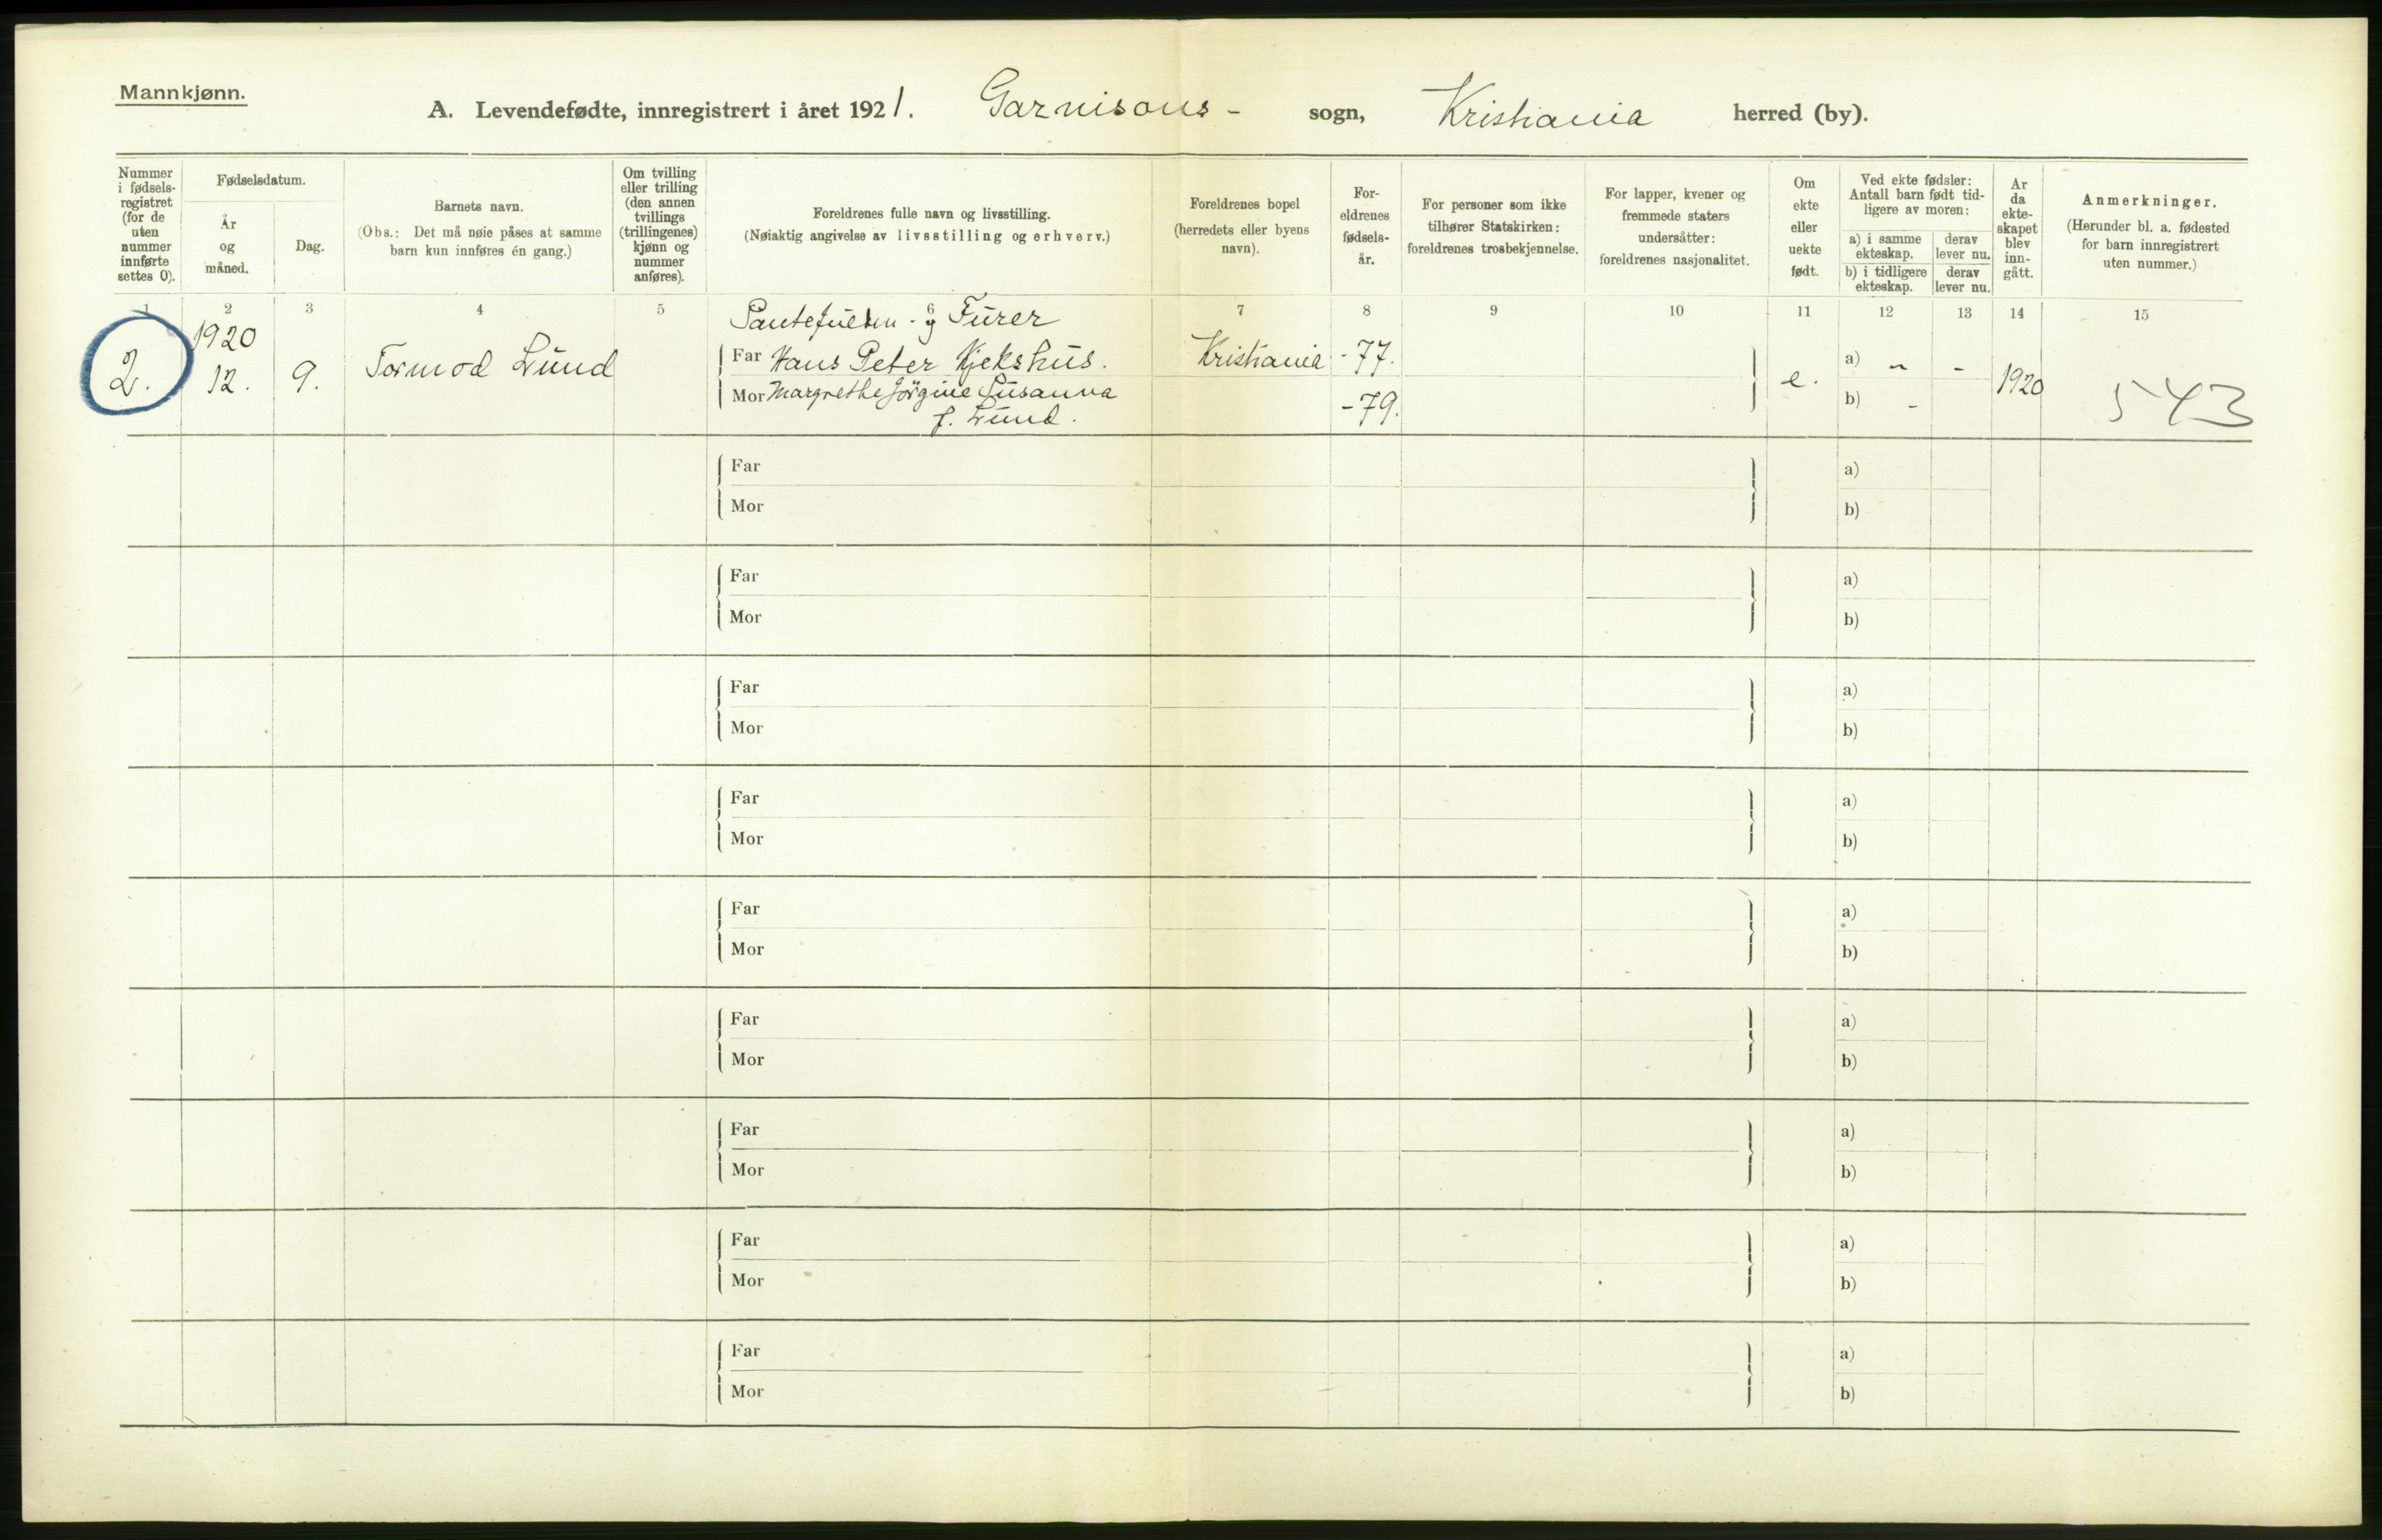 Mannkjønn.
A. Levendefødte, innregistrert i året 1921. Garnisons- sogn, Kristiania herred (by).
Nummer i fødsels-registret (for de uten nummer innførte settes 0).
Fødselsdatum.
År og måned.
Dag.
Barnets navn.
(Obs.: Det må nøie påses at samme barn kun innføres én gang.)
Om tvilling eller trilling (den annen tvillings (trillingenes) kjønn og nummer anføres).
Foreldrenes fulle navn og livsstilling.
(Nøiaktig angivelse av livsstilling og erhverv.)
Foreldrenes bopel (herredets eller byens navn).
For-eldrenes fødsels-år.
For personer som ikke tilhører Statskirken: foreldrenes trosbekjennelse.
For lapper, kvener og fremmede staters undersåtter: foreldrenes nasjonalitet.
Om ekte eller uekte født.
Ved ekte fødsler: Antall barn født tid-ligere av moren:
a) i samme ekteskap.
derav lever nu.
b) i tidligere ekteskap.
derav lever nu.
År da ekte-skapet blev inn-gått.
Anmerkninger.
(Herunder bl. a. fødested for barn innregistrert uten nummer.)
1 2 3 4 5 6 7 8 9 10 11 12 13 14 15
Furer
2. 1920 12. 9. Tormod Lund
Far Hans Peter Kjekshus. Kristiania -77.
Mor Margrethe Jörgine Susanna f. Lund. -79.
e. a) - - b) - 1920 543
Far a)
Mor b)
Far a)
Mor b)
Far a)
Mor b)
Far a)
Mor b)
Far a)
Mor b)
Far a)
Mor b)
Far a)
Mor b)
Far a)
Mor b)
Far a)
Mor b)